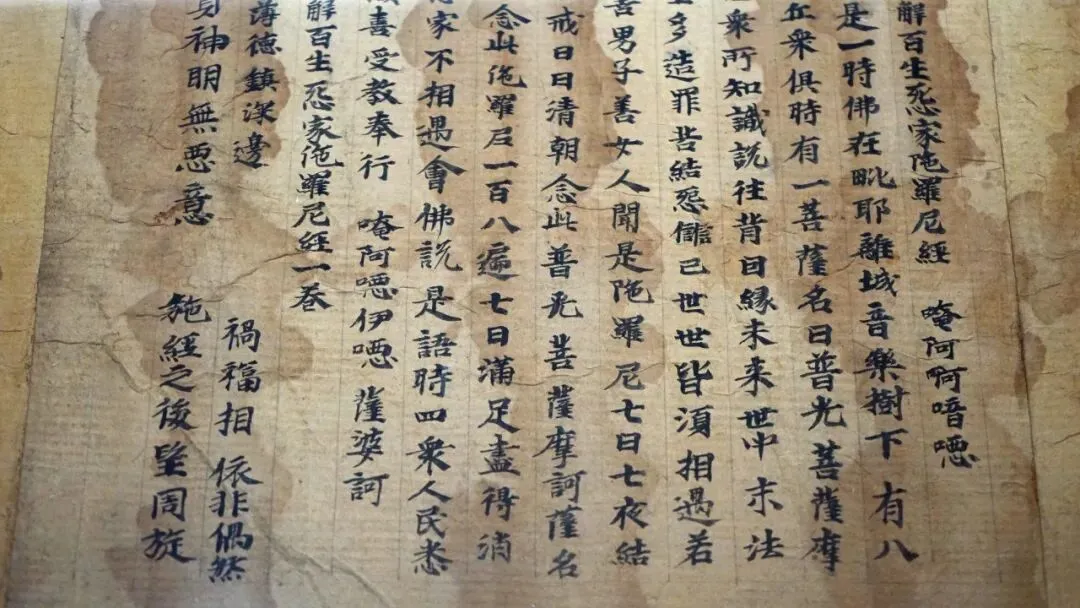 解百生惌家陁羅尼經 唵阿啊喑噁
是一時佛在毗耶離城音樂樹下有八
丘衆俱時有一菩薩名曰普光菩薩摩
衆所知識説往昔因縁未来世中末法
多造罪苦結惌讎已世世皆湏相遇若
善男子善女人聞是陁羅尼七日七夜結
戒日日清朝念此普光菩薩摩訶薩名
念此陁羅尼一百八遍七日滿足盡得消
家不相遇會佛説是語時四衆人民悉
喜受教奉行 唵阿噁伊噁 薩婆訶
解百生惌家陁羅尼經一卷
薄德鎮深邊 禍福相依非偶然
身神明無惡意 施經之後望周旋